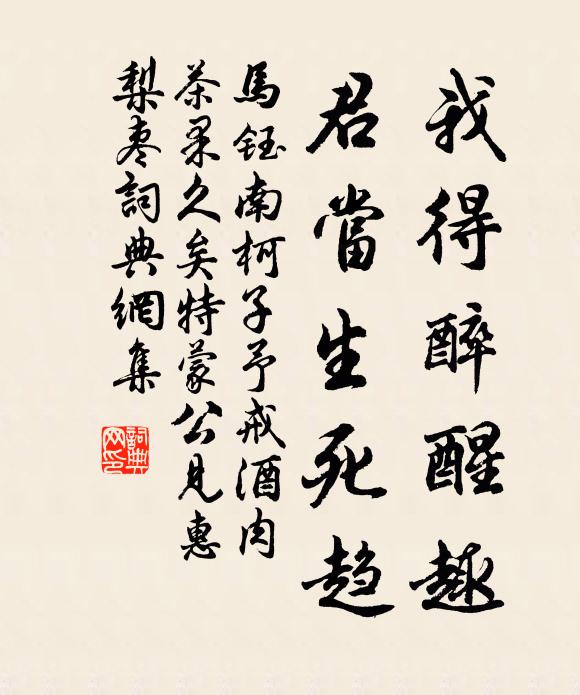 我得醉醒趣
君當生死趋
馬鈺南柯子予戒酒肉
茶果久矣特蒙公見惠
梨枣詞典網集
詞典
网印